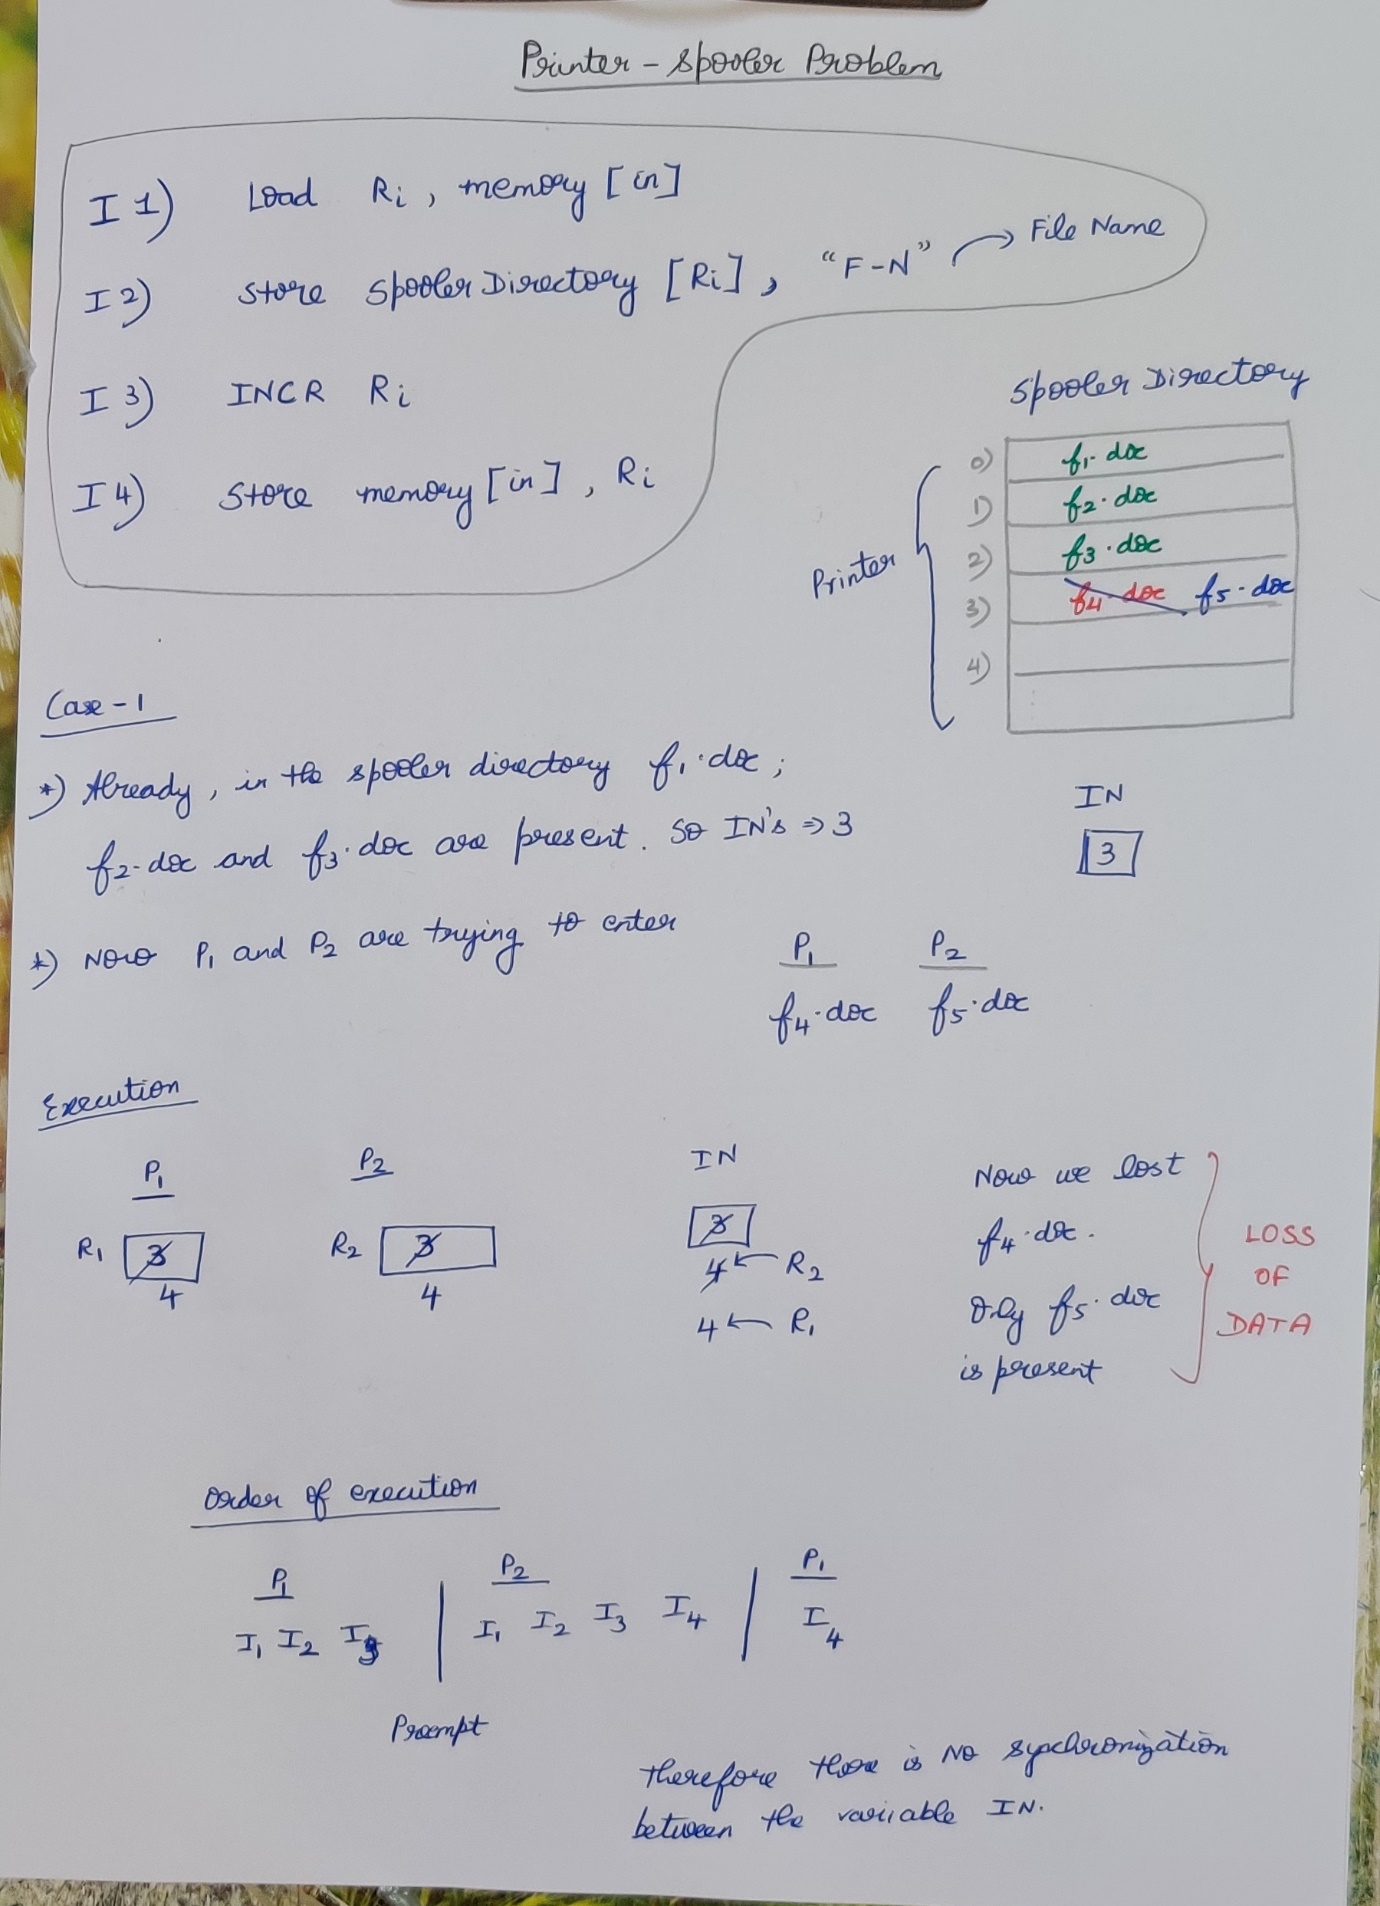 Printer - Spooler Problem
I 1) Load Ri, memory [in]
I 2) Store Spooler Directory [Ri], "F-N" → File Name
I 3) INCR Ri
I 4) Store memory [in], Ri
Spooler Directory
Printer
0) f1.doc
1) f2.doc
2) f3.doc
3) f4.doc f5.doc
4)
Case - 1
*) Already, in the spooler directory f1.doc;
f2.doc and f3.doc are present. So IN's => 3
IN
3
*) Now P1 and P2 are trying to enter
P1 P2
f4.doc f5.doc
Execution
P1 P2 IN
R1 3 R2 3 3
4 4 4 ← R2
4 ← R1
Now we lost
f4.doc.
Only f5.doc
is present
LOSS
OF
DATA
Order of execution
P1 P2 P1
I1 I2 I3 | I1 I2 I3 I4 | I4
Prempt
Therefore there is No sychronization
between the variable IN.